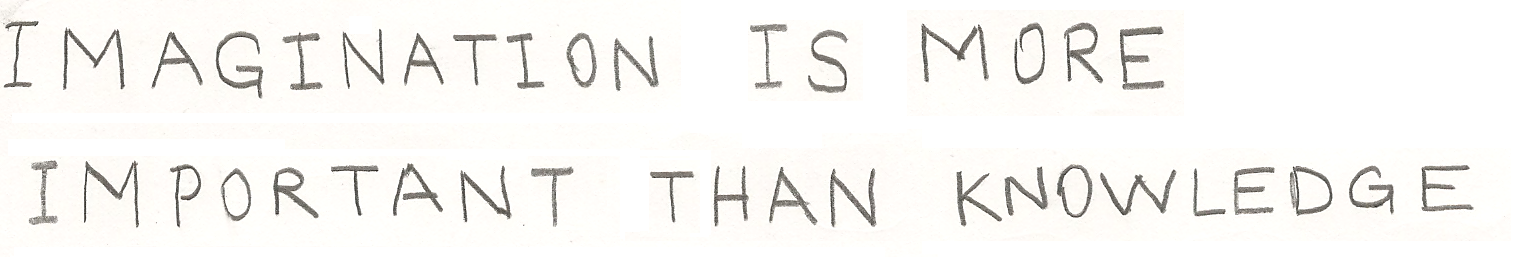 IMAGINATION IS MORE
IMPORTANT THAN KNOWLEDGE